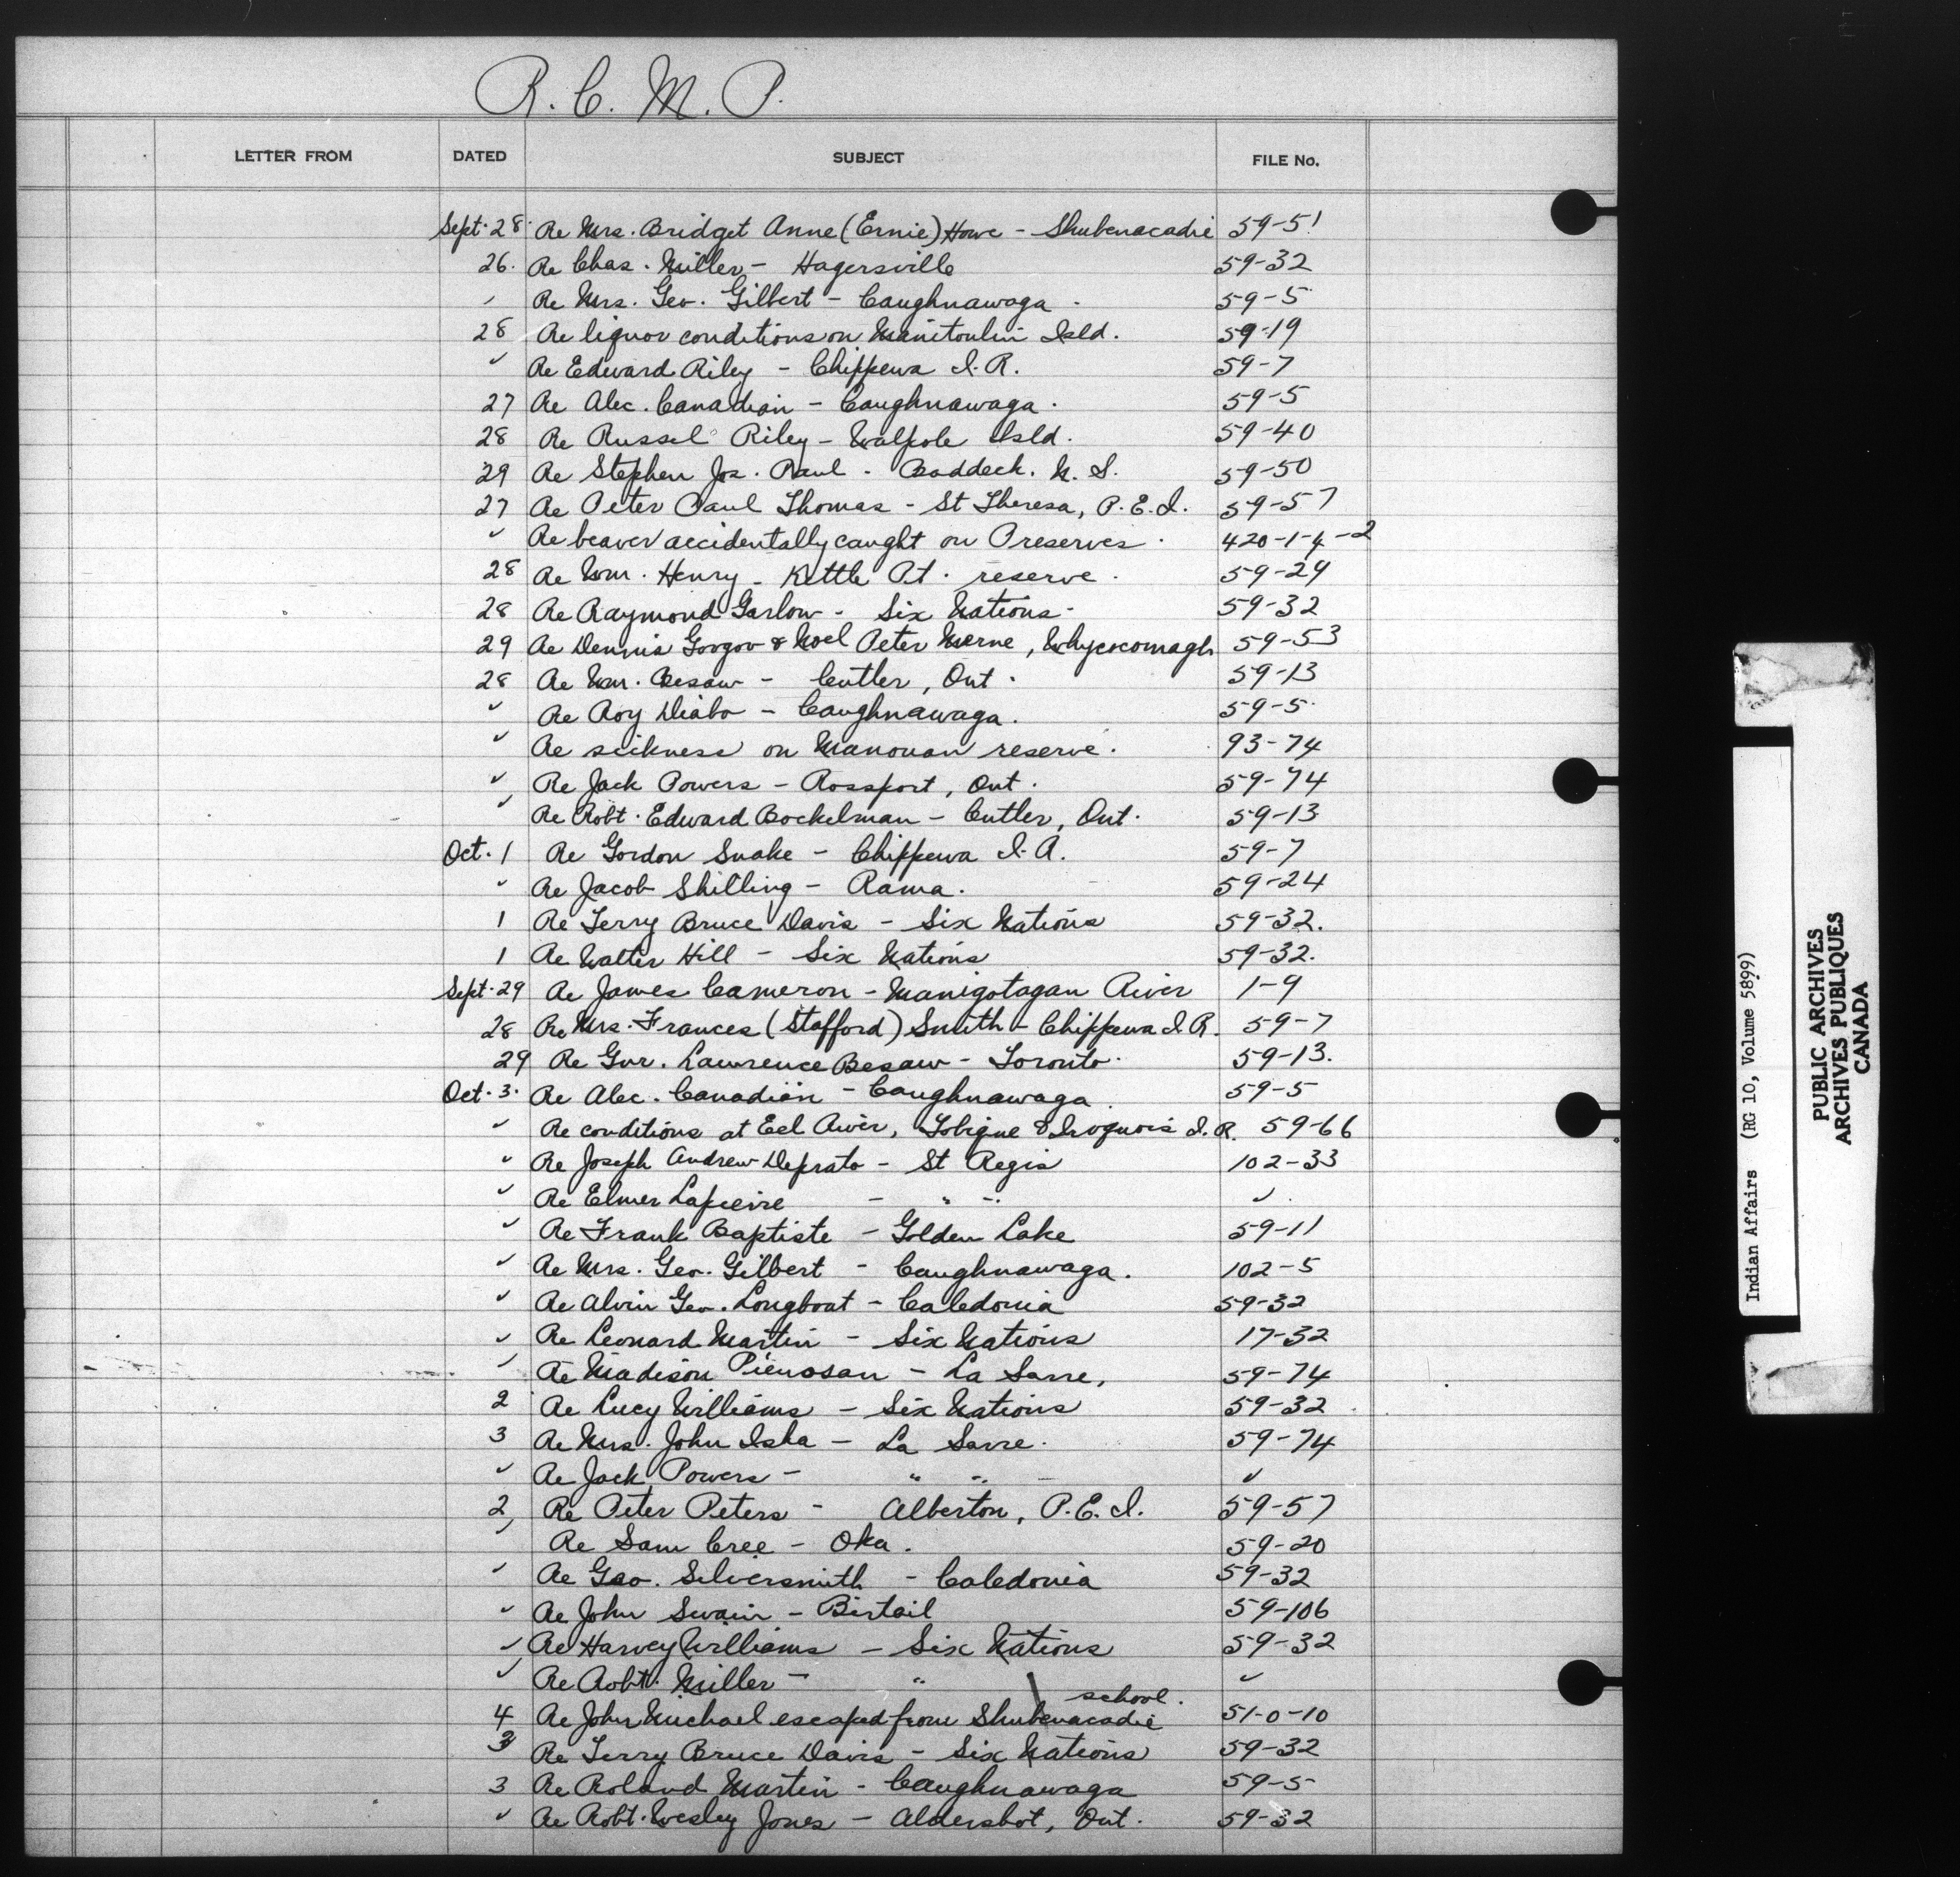 R. C. M. P.
LETTER FROM DATED SUBJECT FILE No.
Sept. 28 Re Mrs. Bridget Anne (Ernie) Howe - Shubenacadie 59-51
26. Re Chas. Miller - Hagersville 59-32
" Re Mrs. Geo. Gilbert - Caughnawaga. 59-5
28 Re liquor conditions on Manitoulin Isld. 59-19
" Re Edward Riley - Chippewa I.R. 59-7
27 Re Alec. Canadian - Caughnawaga. 59-5
28 Re Russel Riley - Walpole Isld. 59-40
29 Re Stephen Jos. Paul - Baddeck. N.S. 59-50
27 Re Peter Paul Thomas - St Theresa, P.E.I. 59-57
" Re beaver accidentally caught on Preserves. 420-1-4-2
28 Re Wm. Henry - Kettle Pt. reserve. 59-29
28 Re Raymond Garlow - Six Nations - 59-32
29 Re Dennis Googoo & Noel Peter , Whycocomagh 59-53
28 Re Wm. Besaw - Cutler, Ont. 59-13
" Re Roy Diabo - Caughnawaga. 59-5
" Re sickness on Manouan reserve. 93-74
" Re Jack Powers - Rossport, Ont. 59-74
" Re Robt. Edward Bockelman - Cutler, Ont. 59-13
Oct. 1 Re Gordon Snake - Chippewa I.R. 59-7
" Re Jacob Shilling - Rama. 59-24
1 Re Terry Bruce Davis - Six Nations 59-32.
1 Re Walter Hill - Six Nations 59-32.
Sept. 29 Re James Cameron - Manigotagan River 1-9
28 Re Mrs. Frances (Stafford) Smith - Chippewa I.R. 59-7
29 Re Gnr. Lawrence Besaw - Toronto. 59-13.
Oct. 3. Re Alec. Canadian - Caughnawaga. 59-5
" Re conditions at Eel River, Tobique & Iroquois I.R. 59-66
" Re Joseph Andrew Deprato - St Regis 102-33
" Re Elmer Lapierre - " " "
" Re Frank Baptiste - Golden Lake 59-11
" Re Mrs. Geo. Gilbert - Caughnawaga. 102-5
" Re Alvin Geo. Longboat - Caledonia 59-32
" Re Leonard Martin - Six Nations 17-32
" Re Madison - La Sarre, 59-74
2 Re Lucy Williams - Six Nations 59-32
3 Re Mrs. John - La Sarre. 59-74
" Re Jack Powers - " " "
2 Re Peter Peters - Alberton, P.E.I. 59-57
" Re Sam Cree - Oka. 59-20
" Re Geo. Silversmith - Caledonia 59-32
" Re John Swain - Birtail 59-106
" Re Harvey Williams - Six Nations 59-32
" Re Robt. Miller - " "
4 Re John Michael escaped from Shubenacadie school. 51-0-10
3 Re Terry Bruce Davis - Six Nations 59-32
3 Re Roland Martin - Caughnawaga 59-5
" Re Robt. Wesley Jones - Aldershot, Ont. 59-32
Indian Affairs (RG 10, Volume 5899)
PUBLIC ARCHIVES
ARCHIVES PUBLIQUES
CANADA